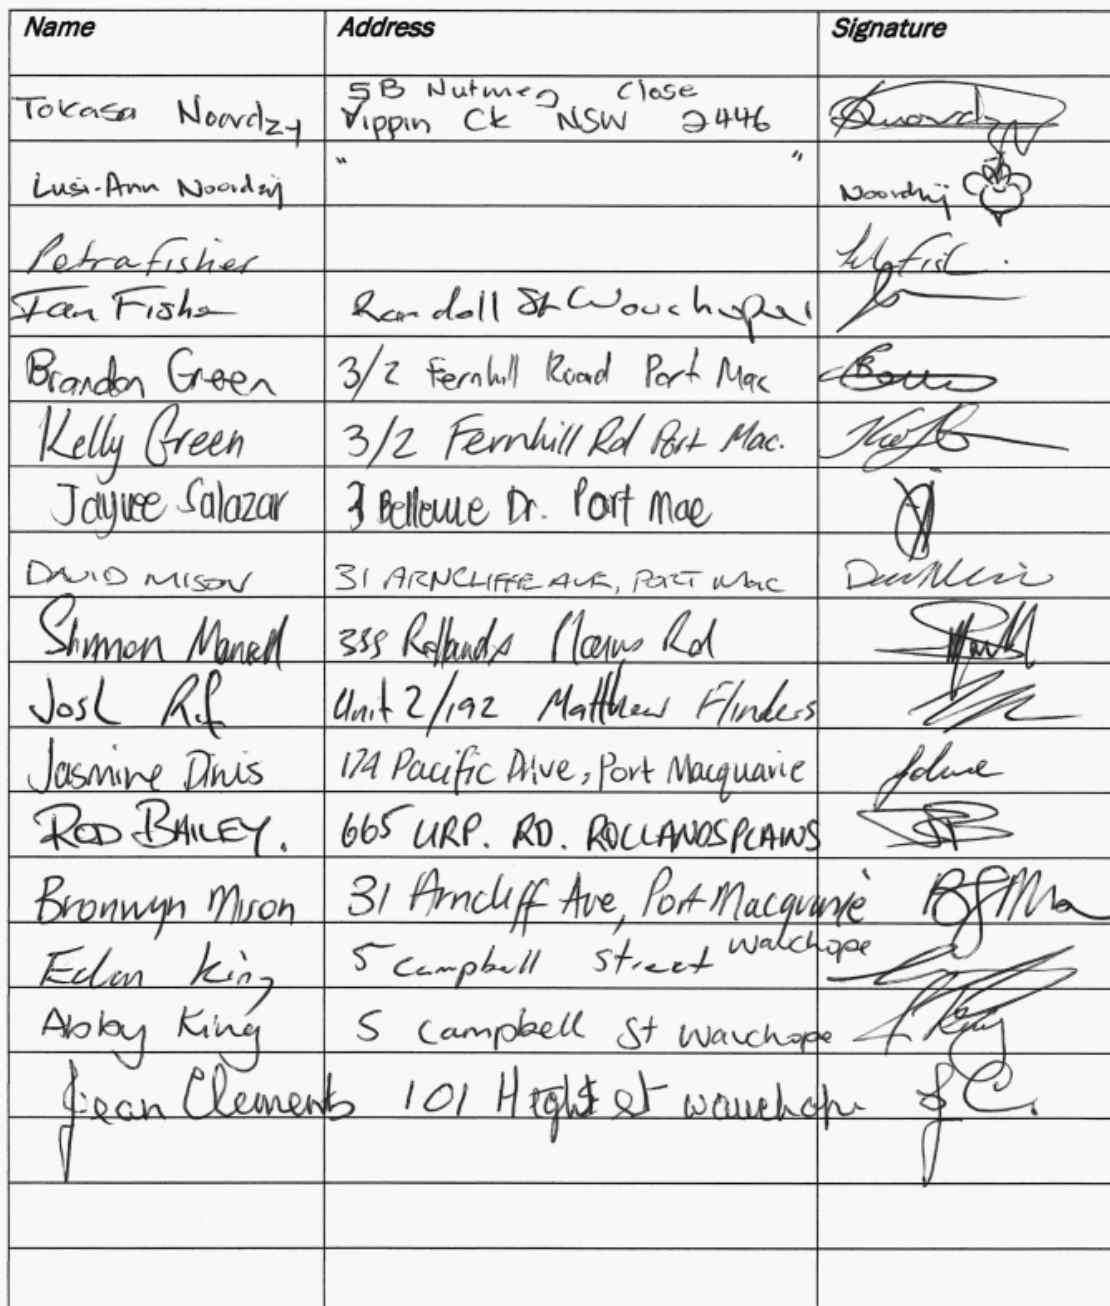 Name Address Signature
Tokasa Noordzy 5B Nutmeg Close
Yippin Ck NSW 2446
Lusi-Ann Noordzij " " Noordzij
Petra Fisher
Ian Fisher Randall St Wauchope
Brandon Green 3/2 Fernhill Road Port Mac
Kelly Green 3/2 Fernhill Rd Port Mac.
Jayvee Salazar 3 Bellevue Dr. Port Mac
DAVID MISON 31 ARNCLIFFE AVE, PORT MAC
Rollands Plains Rd
Josh Unit 2/192 Matthew Flinders
Jasmine Dinis 17A Pacific Drive, Port Macquarie
ROD BAILEY. 665 URP. RD. ROLLANDSPLAINS
Bronwyn Mison 31 Arncliff Ave, Port Macquarie
King 5 Campbell Street Wauchope
Abby King 5 Campbell St Wauchope
Jean Clements 101 High St Wauchope J C.